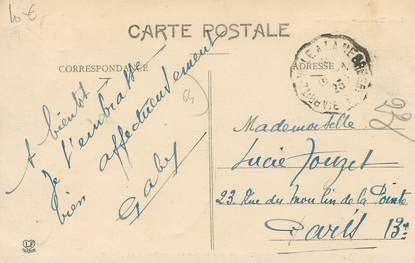 10 €
CARTE POSTALE
CORRESPONDANCE
ADRESSE
A bientôt
Je t'embrasse
bien affectueusement
Gaby
64
Mademoiselle
Lucie Touzet
23 Rue du Moulin de la Pointe
Paris 13e